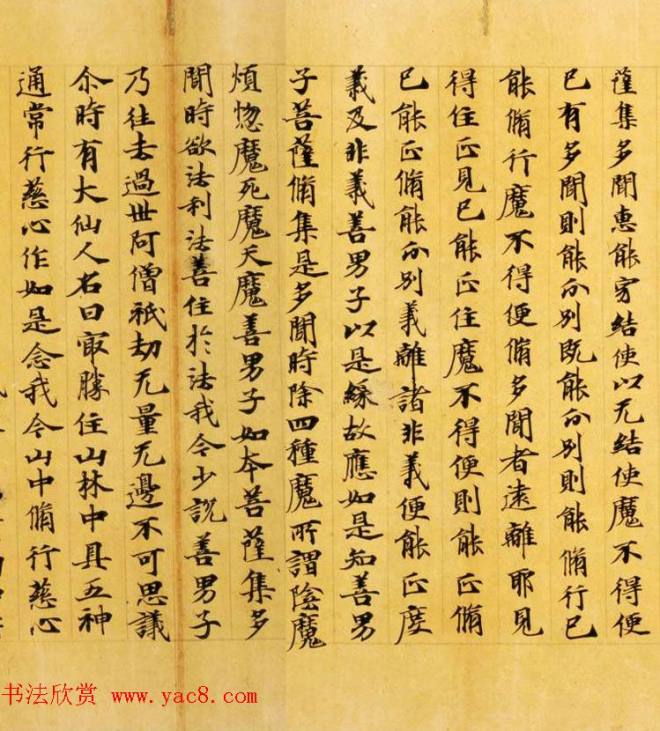 薩集多聞惠能穿結使以无結使魔不得便
已有多聞則能分別既能分別則能脩行已
能脩行魔不得便脩多聞者遠離耶見
得住正見已能正住魔不得便則能正脩
已能正脩能分別義離諸非義便能正度
義及非義善男子以是緣故應如是知善男
子菩薩脩集是多聞時除四種魔所謂陰魔
煩惚魔死魔天魔善男子如本菩薩集多
聞時欲法利法善住於法我今少說善男子
乃往去過世阿僧祇劫无量无邊不可思議
尒時有大仙人名曰冣勝住山林中具五神
通常行慈心作如是念我今山中脩行慈心
书法欣赏 www.yac8.com